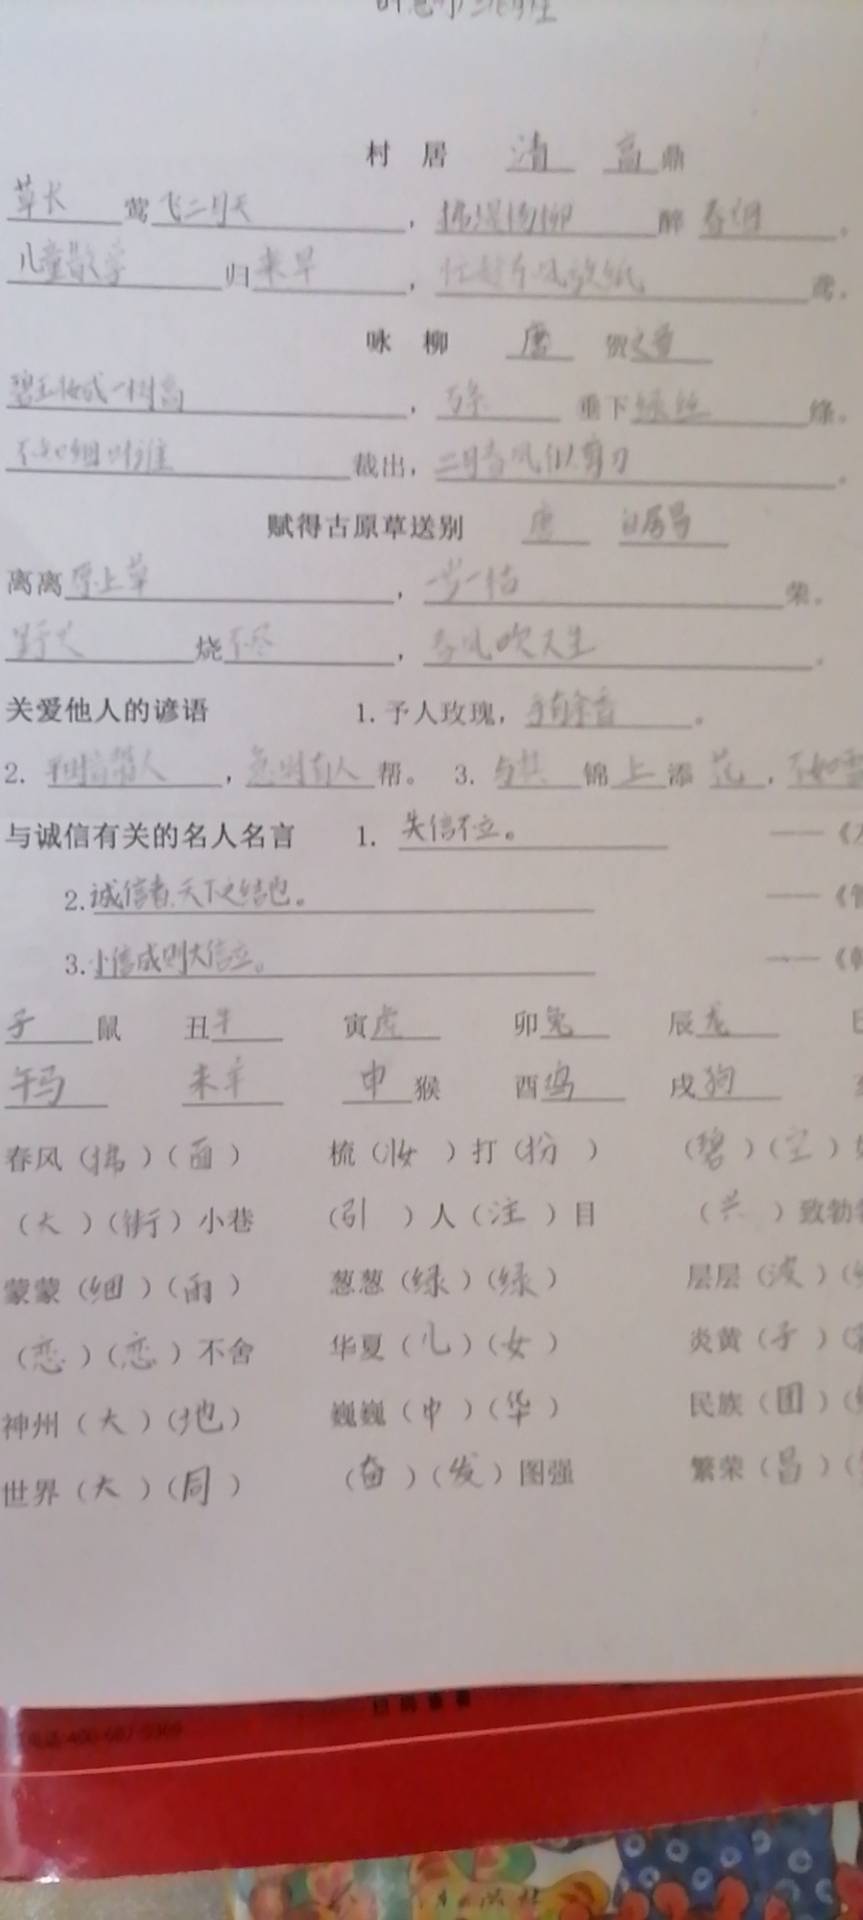 村 居 清 高鼎
草长莺飞二月天，拂堤杨柳醉春烟。
儿童散学归来早，忙趁东风放纸鸢。
咏 柳 唐 贺之章
碧玉妆成一树高，万条垂下绿丝绦。
不知细叶谁裁出，二月春风似剪刀。
赋得古原草送别 唐 白居易
离离原上草，一岁一枯荣。
野火烧不尽，春风吹又生。
关爱他人的谚语 1. 予人玫瑰，手有余香。
2. 平时肯帮人，急时有人帮。 3. 与其锦上添花，不如雪
与诚信有关的名人名言 1. 失信不立。 ——《
2. 诚信者，天下之结也。 ——《管
3. 小信成则大信立。 ——《韩
子鼠 丑牛 寅虎 卯兔 辰龙
午马 未羊 申猴 酉鸡 戌狗
春风（拂）（面） 梳（妆）打（扮） （碧）（空）
（大）（街）小巷 （引）人（注）目 （兴）致勃
蒙蒙（细）（雨） 葱葱（绿）（绿） 层层（波）（
（恋）（恋）不舍 华夏（儿）（女） 炎黄（子）（
神州（大）（地） 巍巍（中）（华） 民族（团）（
世界（大）（同） （奋）（发）图强 繁荣（昌）（